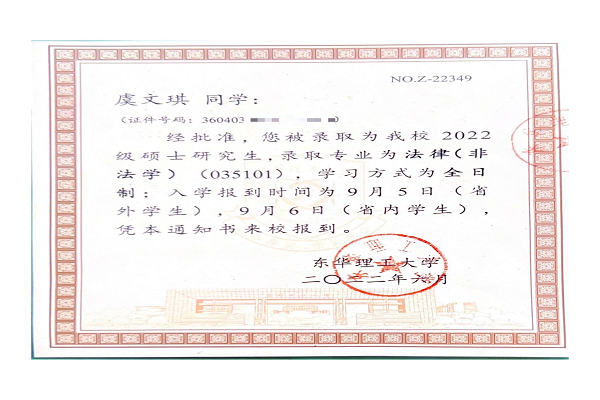 NO.Z-22349
虞文琪 同学：
（证件号码：360403 ）
经批准，您被录取为我校2022
级硕士研究生，录取专业为法律（非
法学）（035101），学习方式为全日
制；入学报到时间为9月5日（省
外学生），9月6日（省内学生），
凭本通知书来校报到。
东华理工大学
二〇二二年六月